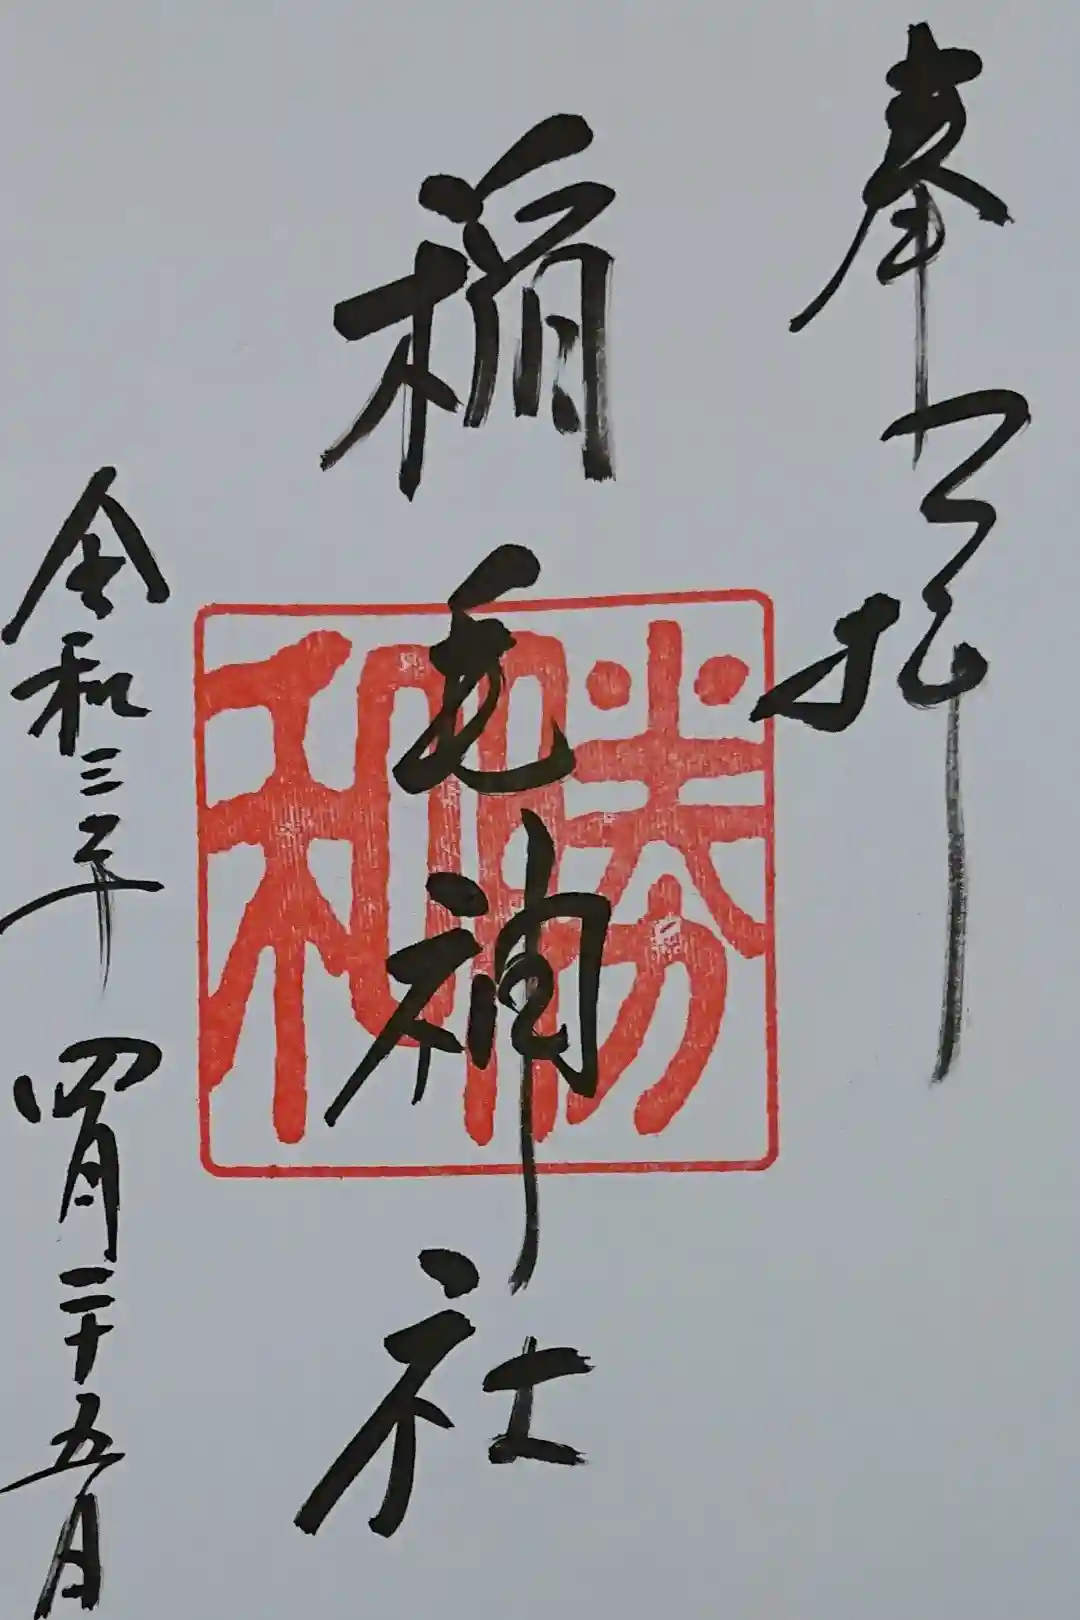 奉拝
稲毛神社
勝和
令和三年四月二十五日